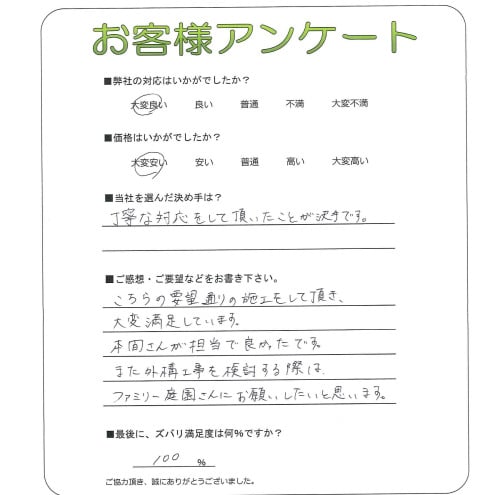 お客様アンケート
■弊社の対応はいかがでしたか？
大変良い 良い 普通 不満 大変不満
■価格はいかがでしたか？
大変安い 安い 普通 高い 大変高い
■当社を選んだ決め手は？
丁寧な対応をして頂いたことが決手です。
■ご感想・ご要望などをお書き下さい。
こちらの要望通りの施工をして頂き、
大変満足しています。
本間さんが担当で良かったです。
また外構工事を検討する際は、
ファミリー庭園さんにお願いしたいと思います。
■最後に、ズバリ満足度は何%ですか？
100 %
ご協力頂き、誠にありがとうございました。